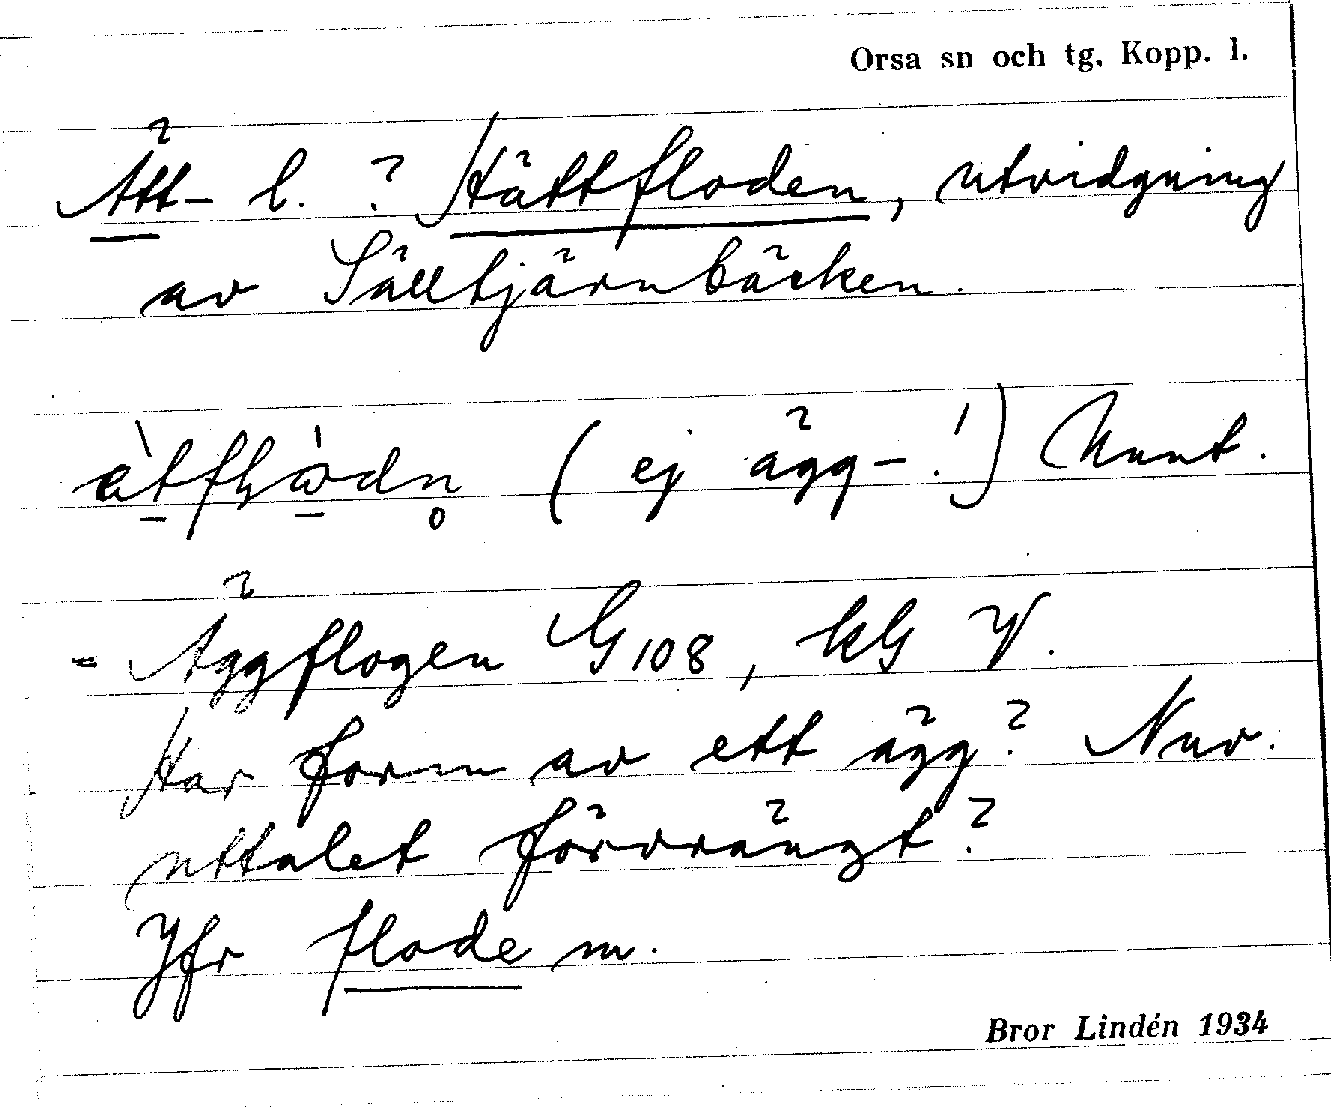 Orsa sn och tg. Kopp. l.
Ätt- l. ? Hättfloden, utvidgning
av Sälltjärnbäcken.
(ej ägg-!)
- Äggflogen G108, kG V.
Har form av ett ägg? Nuv.
uttalet förvrängt?
Jfr flode m.
Bror Lindén 1934